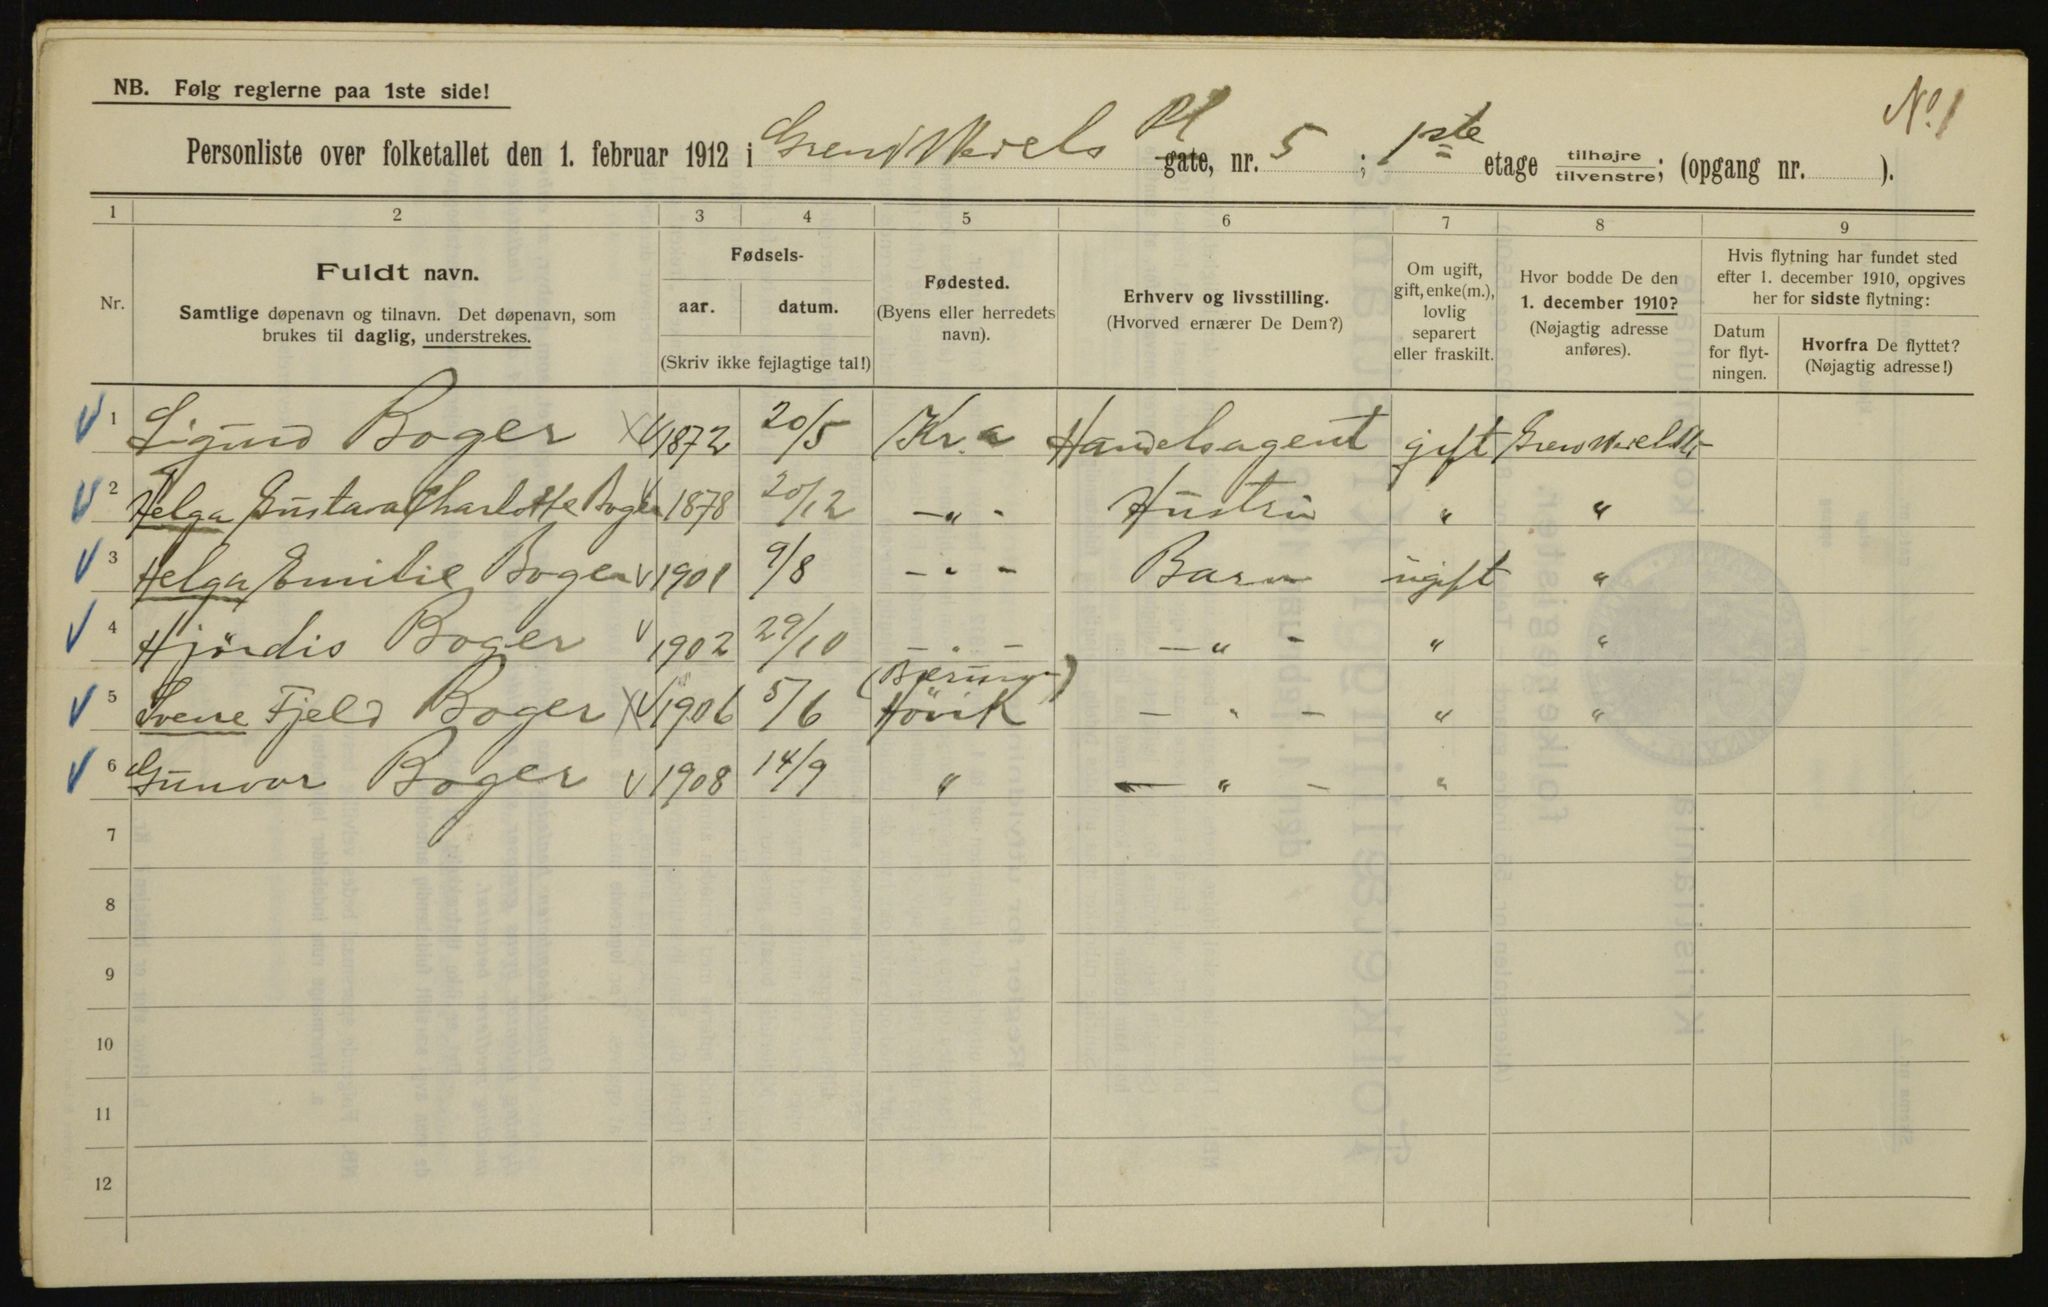 No. 1
NB. Følg reglerne paa 1ste side!
Personliste over folketallet den 1. februar 1912 i Grev Wedels Pl gate, nr. 5 ; 1ste etage tilhøjre/tilvenstre; (opgang nr. ).
1 2 3 4 5 6 7 8 9
Nr.
Fuldt navn.
Samtlige døpenavn og tilnavn. Det døpenavn, som
brukes til daglig, understrekes.
Fødsels-
aar. datum.
(Skriv ikke fejlagtige tal!)
Fødested.
(Byens eller herredets
navn).
Erhverv og livsstilling.
(Hvorved ernærer De Dem?)
Om ugift,
gift, enke(m.),
lovlig
separert
eller fraskilt.
Hvor bodde De den
1. december 1910?
(Nøjagtig adresse
anføres).
Hvis flytning har fundet sted
efter 1. december 1910, opgives
her for sidste flytning:
Datum
for flyt-
ningen.
Hvorfra De flyttet?
(Nøjagtig adresse!)
1 Sigurd Boger 1872 20/5 Kr.a Handelsagent gift Grev Wedels Pl
2 Helga Gustava Charlotte Boger 1878 20/12 - " - Hustru " "
3 Helga Emilie Boger 1901 9/8 - " - Barn ugift "
4 Hjørdis Boger 1902 29/10 - " - - " - " "
5 Sverre Fjeld Boger 1906 5/6 (Bærum) Høvik - " - " "
6 Gunvor Boger 1908 14/9 " - " - "
7
8
9
10
11
12